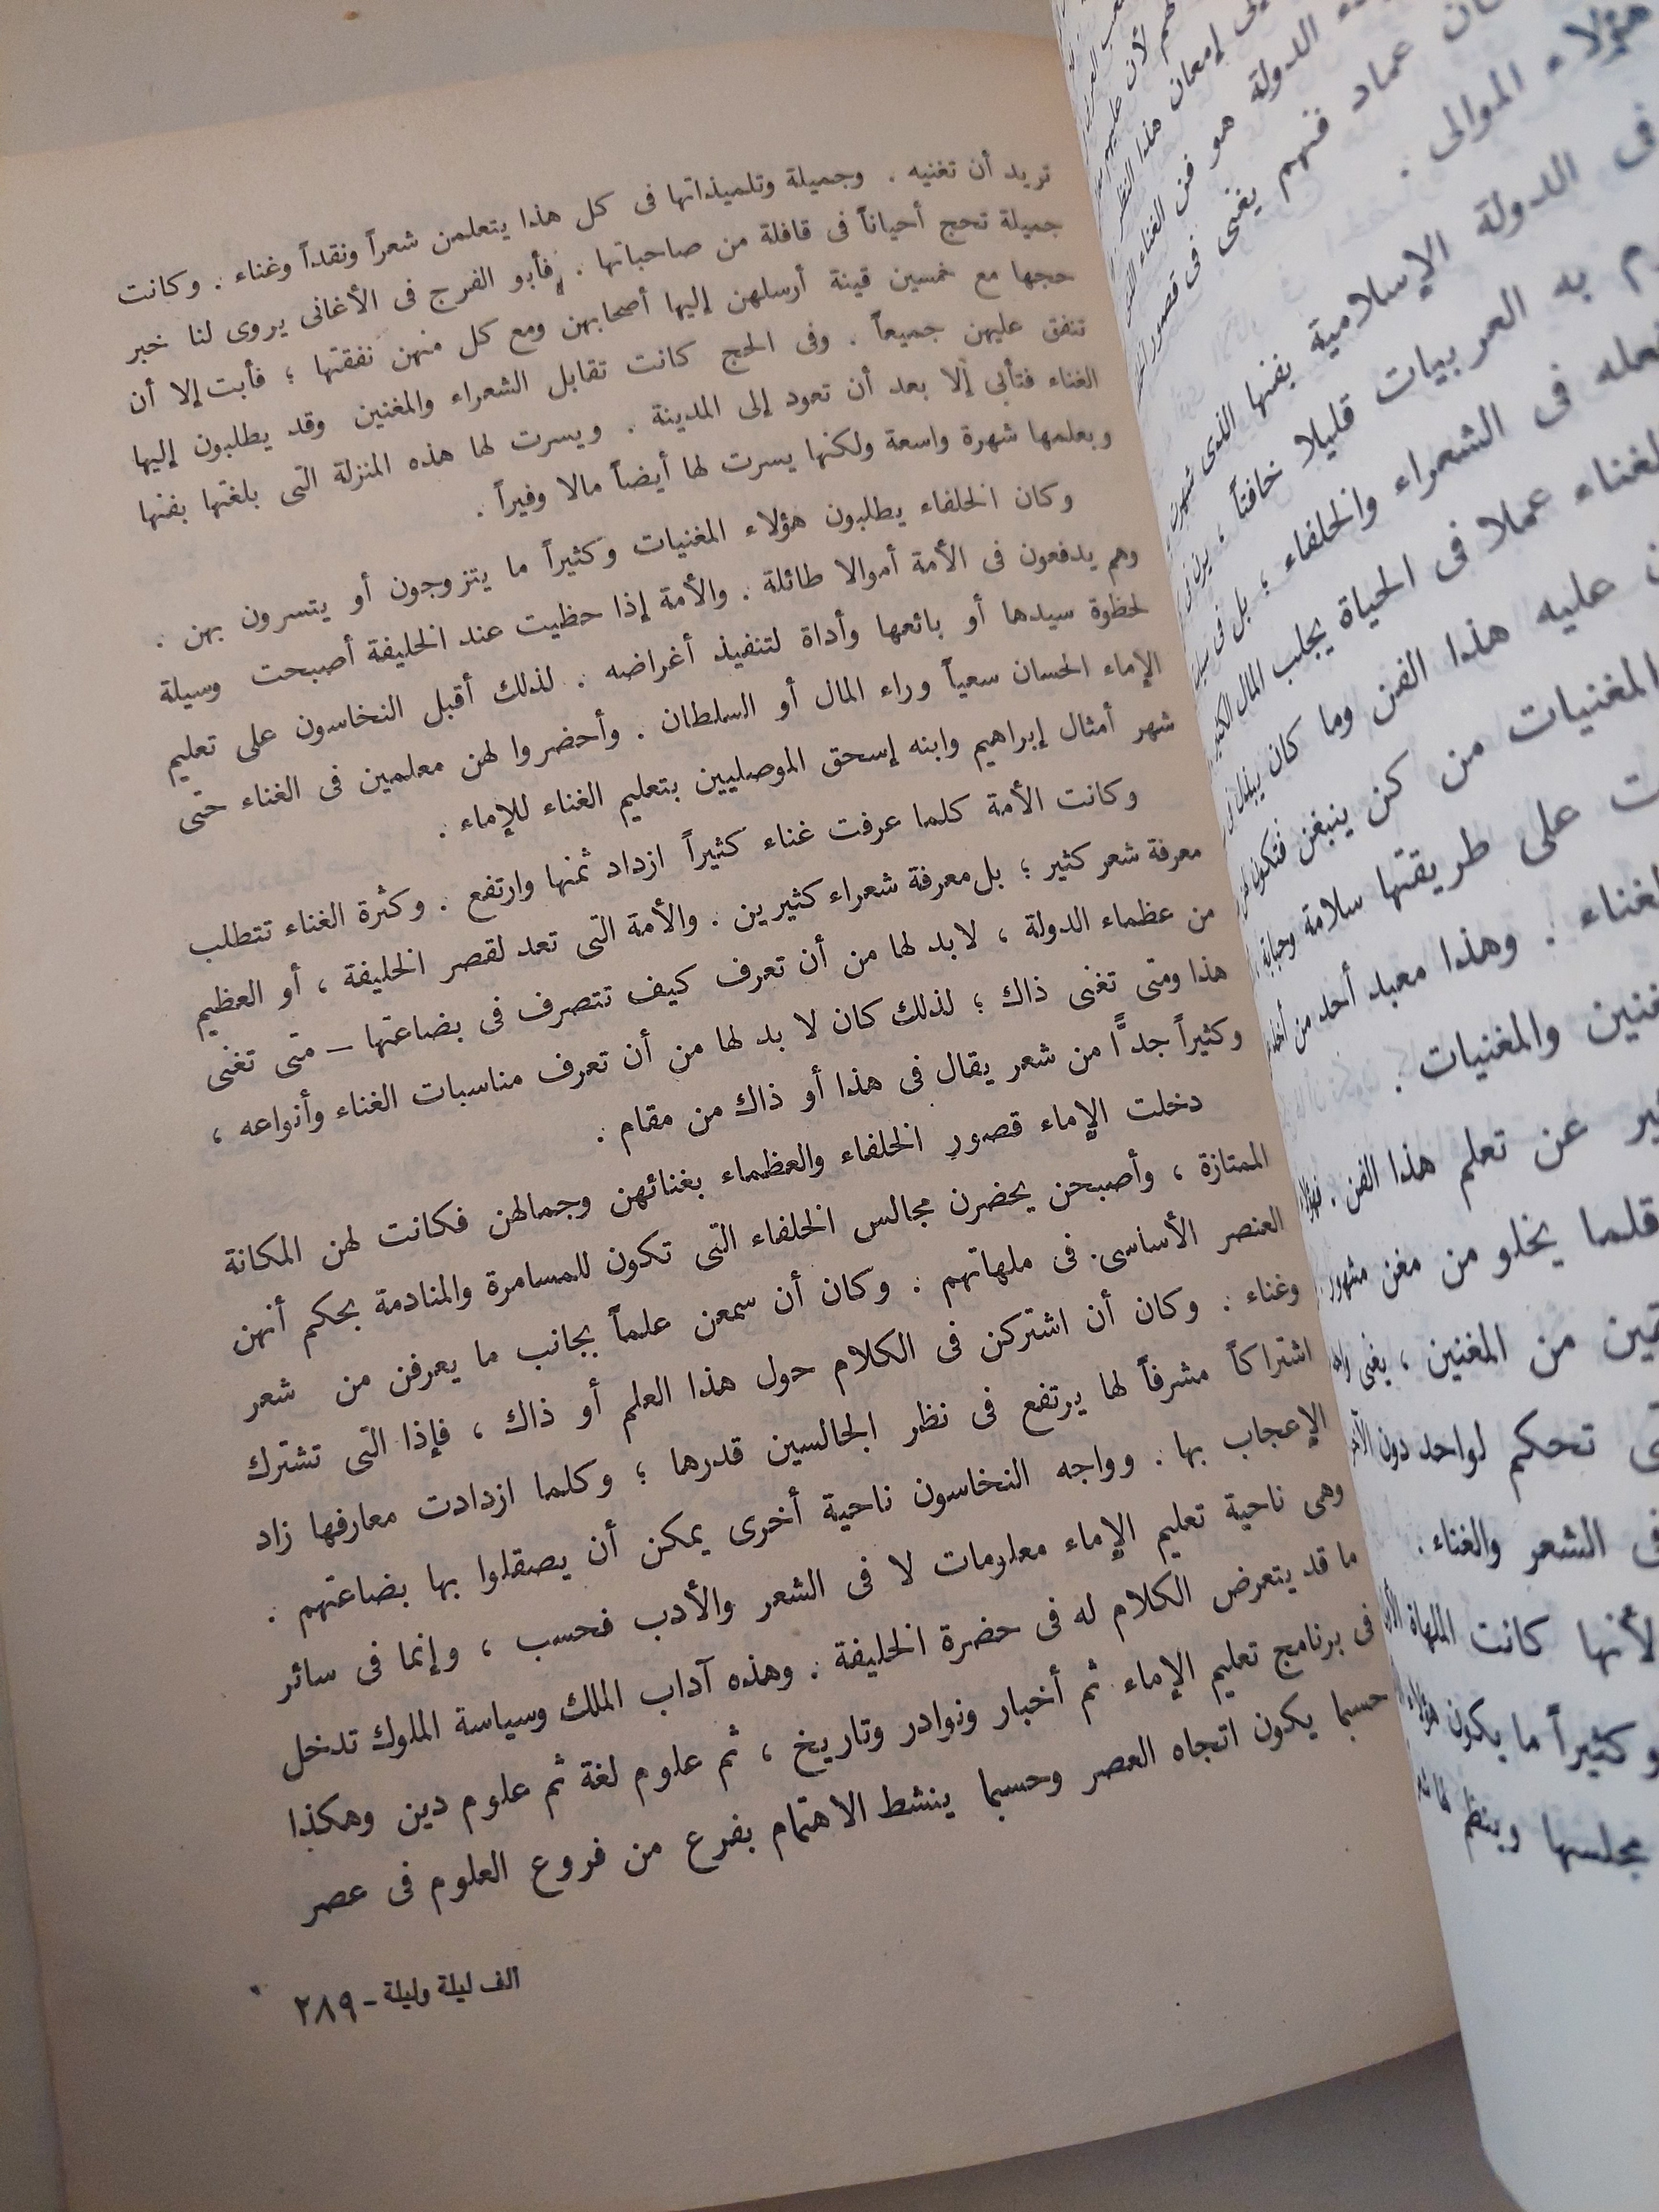 تريد أن تغنيه . وجميلة وتلميذاتها فى كل هذا يتعلمن شعراً ونقداً وغناء . وكانت
جميلة تحج أحياناً فى قافلة من صاحباتها . فأبو الفرج فى الأغانى يروى لنا خبر
حجها مع خمسين قينة أرسلهن إليها أصحابهن ومع كل منهن نفقتها ؛ فأبت إلا أن
تنفق عليهن جميعاً . وفى الحج كانت تقابل الشعراء والمغنين وقد يطلبون إليها
الغناء فتأبى إلا بعد أن تعود إلى المدينة . ويسرت لها هذه المنزلة التى بلغتها بفنها
وبعلمها شهرة واسعة ولكنها يسرت لها أيضاً مالا وفيراً .
وكان الخلفاء يطلبون هؤلاء المغنيات وكثيراً ما يتزوجون أو يتسرون بهن .
وهم يدفعون فى الأمة أموالا طائلة . والأمة إذا حظيت عند الخليفة أصبحت وسيلة
لحظوة سيدها أو بائعها وأداة لتنفيذ أغراضه . لذلك أقبل النخاسون على تعليم
الإماء الحسان سعياً وراء المال أو السلطان . وأحضروا لهن معلمين فى الغناء حتى
شهر أمثال إبراهيم وابنه إسحق الموصليين بتعليم الغناء للإماء .
وكانت الأمة كلما عرفت غناء كثيراً ازداد ثمنها وارتفع . وكثرة الغناء تتطلب
معرفة شعر كثير ؛ بل معرفة شعراء كثيرين . والأمة التى تعد لقصر الخليفة ، أو العظيم
من عظماء الدولة ، لابد لها من أن تعرف كيف تتصرف فى بضاعتها – متى تغنى
هذا ومتى تغنى ذاك ؛ لذلك كان لا بد لها من أن تعرف مناسبات الغناء وأنواعه ،
وكثيراً جدًّا من شعر يقال فى هذا أو ذاك من مقام .
دخلت الإماء قصور الخلفاء والعظماء بغنائهن وجمالهن فكانت لهن المكانة
الممتازة ، وأصبحن يحضرن مجالس الخلفاء التى تكون للمسامرة والمنادمة بحكم أنهن
العنصر الأساسى فى ملهاتهم . وكان أن سمعن علماً بجانب ما يعرفن من شعر
وغناء . وكان أن اشتركن فى الكلام حول هذا العلم أو ذاك ، فإذا التى تشترك
اشتراكاً مشرفاً لها يرتفع فى نظر الجالسين قدرها ؛ وكلما ازدادت معارفها زاد
الإعجاب بها . وواجه النخاسون ناحية أخرى يمكن أن يصقلوا بها بضاعتهم .
وهى ناحية تعليم الإماء معلومات لا فى الشعر والأدب فحسب ، وإنما فى سائر
ما قد يتعرض الكلام له فى حضرة الخليفة . وهذه آداب الملك وسياسة الملوك تدخل
فى برنامج تعليم الإماء ثم أخبار ونوادر وتاريخ ، ثم علوم لغة ثم علوم دين وهكذا
حسبما يكون اتجاه العصر وحسبما ينشط الاهتمام بفرع من فروع العلوم فى عصر
الف ليلة وليلة – ٢٨٩
إمعان هذا النظر
الدولة هو فن الغناء
عماد فنهم يغنى فى قصور
هؤلاء الموالى .
فى الدولة الإسلامية بفنها الذى شهرت
به العربيات قليلا خافتاً ،
فى الشعراء والخلفاء ؛ بل فى
عملا فى الحياة يجلب المال الكثير
عليه هذا الفن وما كان يبذل
المغنيات من كن ينبغن فتكون
على طريقتها سلامة وحبابة
وهذا معبد أحد من
والمغنيات .
عن تعلم هذا الفن .
قلما يخلو من مغن مشهور
من المغنين ، يغنى
تحكم لواحد دون
فى الشعر والغناء .
لأنها كانت الملهاة
وكثيراً ما يكون هؤلاء
مجلسها وينظم